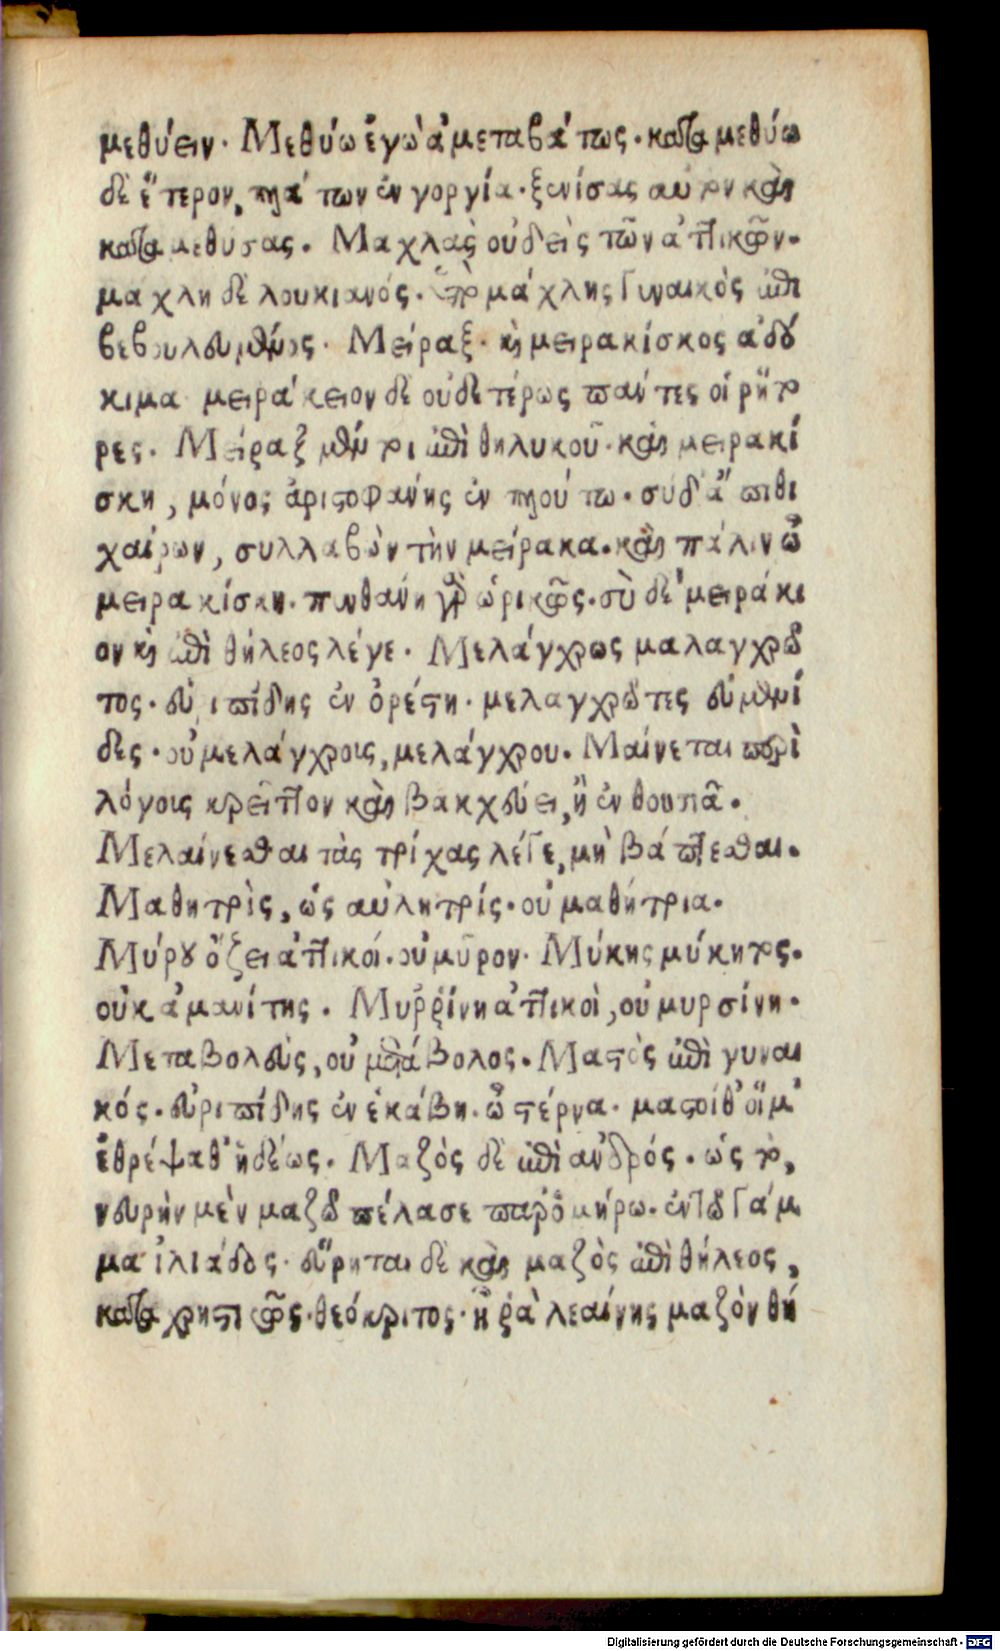 μεθύειν. Μεθύω ἐγὼ ἀμεταβάτως. καταμεθύω
δὲ ἕτερον, πλάτων ἐν γοργία. ξενίσας αὐτὸν καὶ
καταμεθυσας. Μαχλὰς οὐδεὶς τῶν ἀττικῶν.
μαχλη δὲ λουκιανός. μάχλης γυναικός ἐπι
βεβουλευμένος. Μείραξ. καὶ μειρακίσκος ἀδό
κιμα μειράκειον δὲ οὐδετέρως πάντες οἱ ρήτο
ρες. Μείραξ μέν τοι ἐπὶ θηλυκοῦ. καὶ μειρακί
σκη, μόνος ἀριστοφάνης ἐν πλούτω. σὺ δ' ἄπιθι
χαίρων, συλλαβὼν τὴν μείρακα. καὶ πάλιν ὦ
μειρακίσκη. πυνθάνη γὰρ ὡρικῶς. σὺ δὲ μειράκι
ον καὶ ἐπὶ θήλεος λέγε. Μελάγχρως μαλαγχρῶ
τος. εὐριπίδης ἐν ὀρέστη. μελαγχρῶτες εὐμενί
δες. οὐ μελάγχροις, μελάγχρου. Μαίνεται περὶ
λόγοις κρεῖττον καὶ βακχεύει, ἢ ἐνθουσιᾶ.
Μελαίνεσθαι τὰς τρίχας λέγε, μὴ βάπτεσθαι.
Μαθητρὶς, ὡς αὐλητρίς. οὐ μαθήτρια.
Μύρου ὄζει ἀττικοί. οὐ μῦρον. Μύκης μύκητος.
οὐκ ἀμανίτης. Μυῤῥίνη ἀττικοὶ, οὐ μυρσίνη.
Μεταβολεὺς, οὐ μετάβολος. Μαστὸς ἐπὶ γυναι
κός. εὐριπίδης ἐν ἑκάβη. ὦ στέρνα. μαστοίθ' οἵ μ'
ἐθρέψαθ' ἡδέως. Μαζὸς δὲ ἐπὶ ανδρός. ὡς τὸ,
νευρὴν μὲν μαζῶ πέλασε παρὸ μήρω. ἐν τῶ Γάμ
μα ἰλιάδος. εὕρηται δὲ καὶ μαζὸς ἐπὶ θήλεος,
καταχρηστικῶς. θεόκριτος. ἦ ῥὰ λεαίνης μαζὸν θή
Digitalisierung gefördert durch die Deutsche Forschungsgemeinschaft - DFG